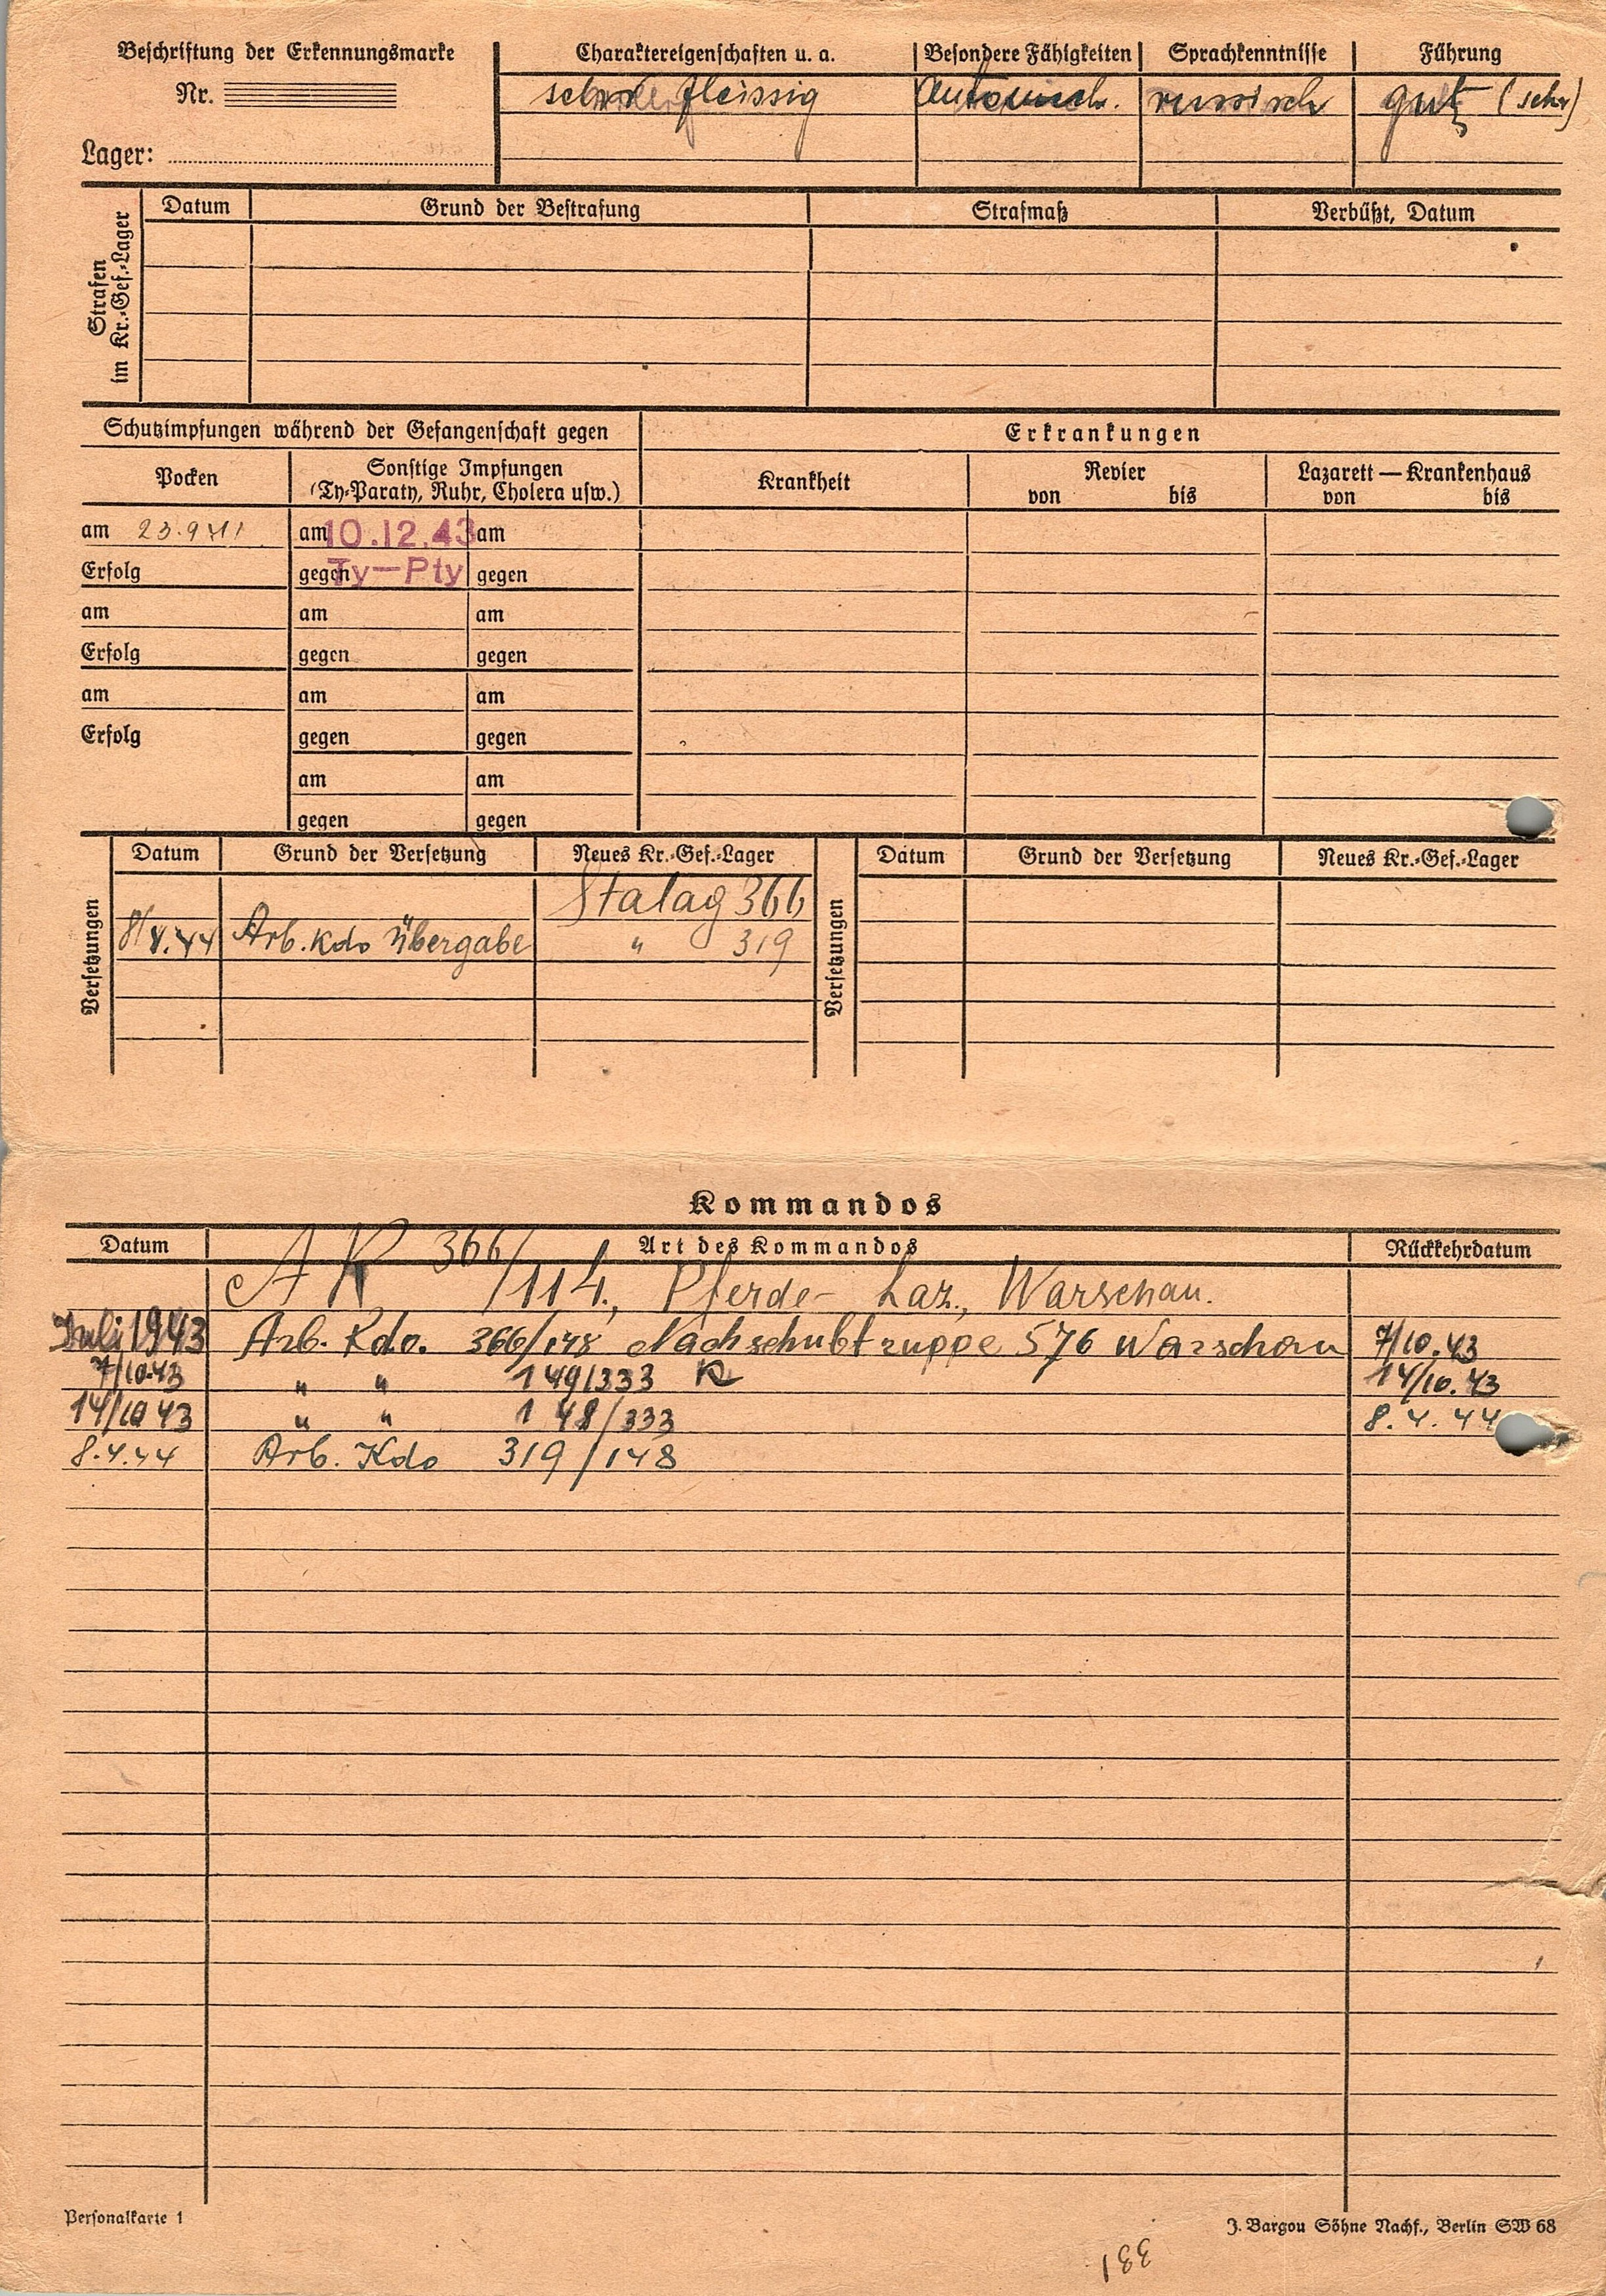 Beschriftung der Erkennungsmarke Charaktereigenschaften u. a. Besondere Fähigkeiten Sprachkenntnisse Führung
Nr. fleissig russisch gut (sehr)
Lager:
Strafen im Kr.-Gef.-Lager
Datum Grund der Bestrafung Strafmaß Verbüßt, Datum
Schutzimpfungen während der Gefangenschaft gegen Erkrankungen
Pocken Sonstige Impfungen (Ty-Paraty, Ruhr, Cholera usw.) Krankheit Revier von bis Lazarett — Krankenhaus von bis
am 23.9.41 am 10.12.43 am
Erfolg gegen Ty-Pty gegen
am am am
Erfolg gegen gegen
am am am
Erfolg gegen gegen
am am
gegen gegen
Versetzungen Datum Grund der Versetzung Neues Kr.-Gef.-Lager Versetzungen Datum Grund der Versetzung Neues Kr.-Gef.-Lager
Stalag 366
Arb. Kdo Übergabe " 319
Kommandos
Datum Art des Kommandos Rückkehrdatum
A K 366/114, Pferde- Laz., Warschau.
Juli 1943 Arb. Kdo. 366/148 Nachschubtruppe 576 Warschau 7/10.43
7/10.43 " " 149/333 R 14/10.43
14/10 43 " " 148/333 8.4.44
8.4.44 Arb. Kdo 319/148
Personalkarte 1 J. Bargou Söhne Nachf., Berlin SW 68